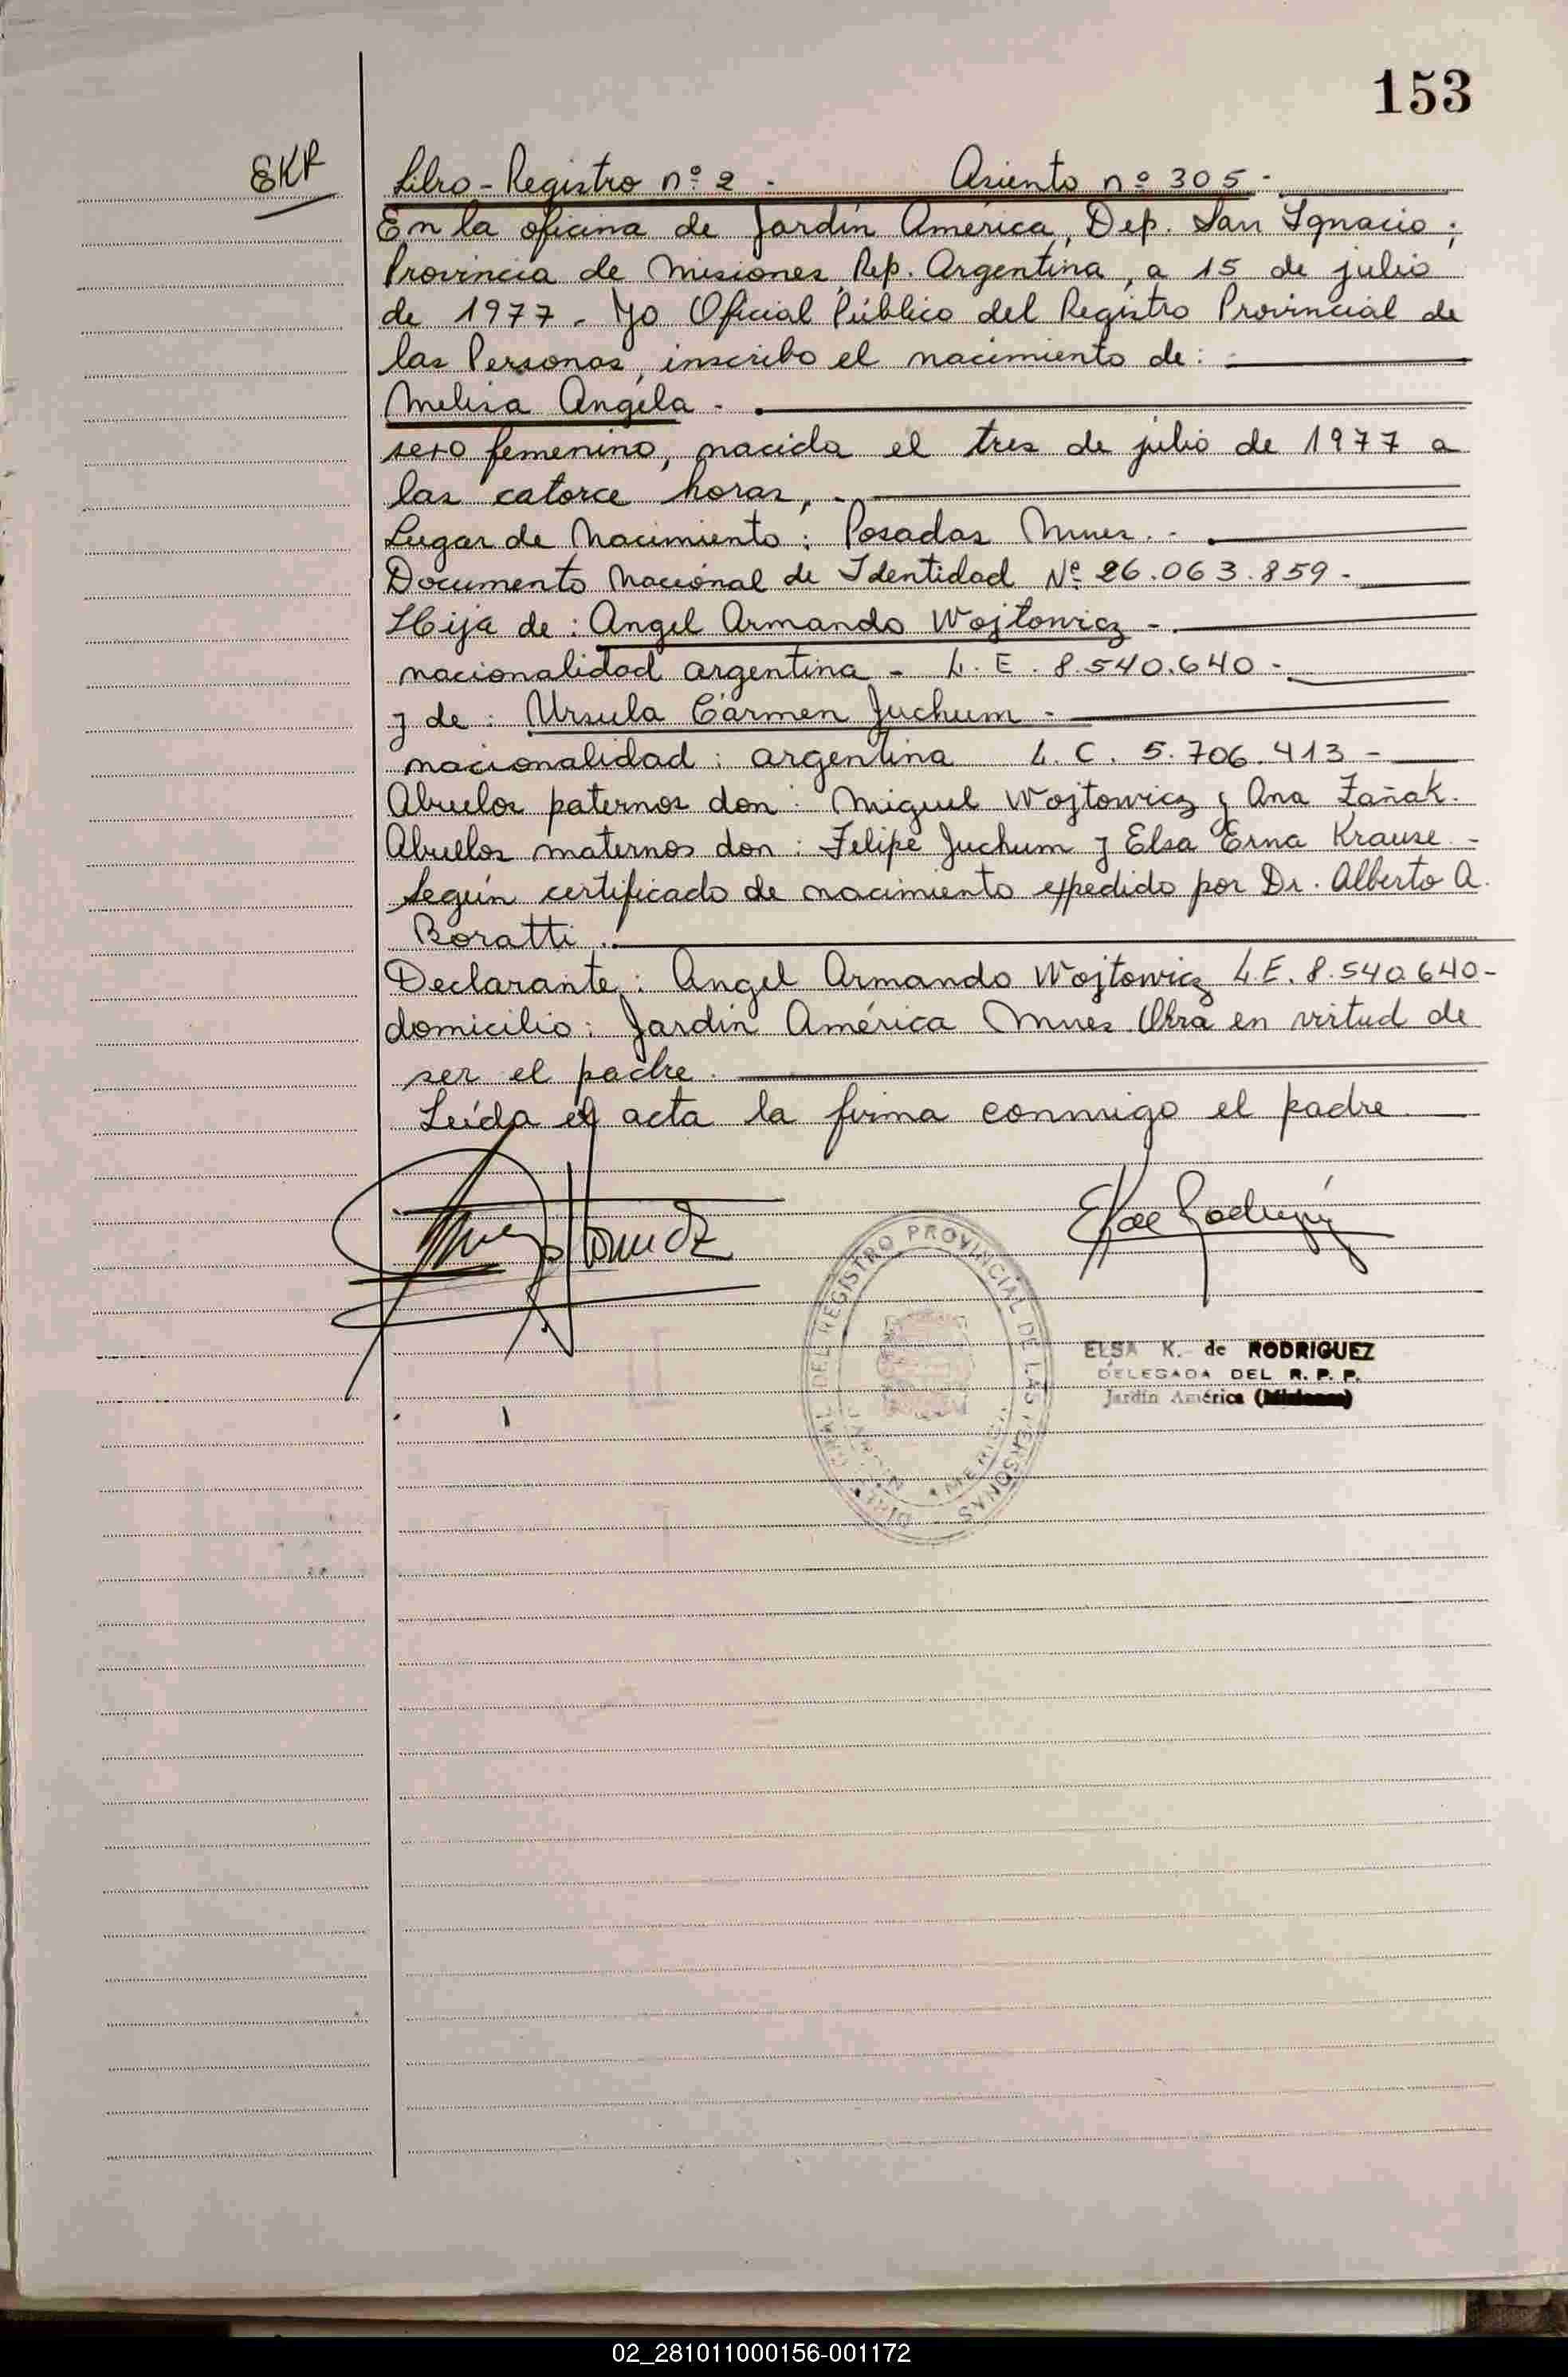 153
EKR
Libro-Registro nº 2 - Asiento nº 305-
En la oficina de Jardín América, Dep. San Ignacio;
Provincia de Misiones, Rep. Argentina, a 15 de julio
de 1977. Yo Oficial Público del Registro Provincial de
las Personas, inscribo el nacimiento de: -
Melisa Angela -.
sexo femenino, nacida el tres de julio de 1977 a
las catorce horas, -.
Lugar de Nacimiento: Posadas Mnes. -.
Documento Nacional de Identidad Nº 26.063.859-
Hija de: Angel Armando Wojtowicz -.
nacionalidad argentina - L.E. 8.540.640-
y de: Ursula Carmen Juchum -
nacionalidad: argentina L.C. 5.706.413-
Abuelos paternos don: Miguel Wojtowicz y Ana Zañak.
Abuelos maternos don: Felipe Juchum y Elsa Erna Krause -
Según certificado de nacimiento expedido por Dr. Alberto A.
Boratti.
Declarante: Angel Armando Wojtowicz L.E. 8.540.640-
domicilio: Jardín América Mnes. Obra en virtud de
ser el padre.
Leída el acta la firma conmigo el padre.
EK de Rodriguez
DIR. GRAL. DEL REGISTRO PROVINCIAL DE LAS PERSONAS
JARDIN AMERICA
ELSA K. de RODRIGUEZ
DELEGADA DEL R. P. P.
Jardín América (Misiones)
02_281011000156-001172